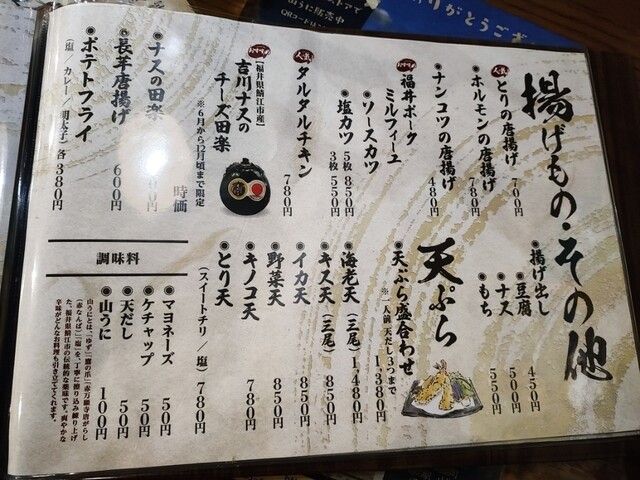 揚げもの・その他
人気 とりの唐揚げ 700円
ホルモンの唐揚げ 780円
ナンコツの唐揚げ 480円
福井ポーク
ミルフィーユ
ソースカツ
塩カツ
5枚 850円
3枚 550円
人気 タルタルチキン 780円
【福井県鯖江市産】
吉川ナスの
チーズ田楽
※6月から12月頃まで限定
時価
ナスの田楽
長芋唐揚げ 600円
ポテトフライ
(塩/カレー/明太子) 各380円
揚げ出し
豆腐 450円
ナス 500円
もち 550円
天ぷら
天ぷら盛合わせ 1,380円
※一人前 天だし3つまで
海老天(三尾) 1,480円
キス天(三尾) 850円
イカ天 850円
野菜天 850円
キノコ天 780円
とり天
(スイートチリ/塩) 780円
調味料
マヨネーズ 50円
ケチャップ 50円
天だし 50円
山うに 100円
山うにとは、「ゆず」「鷹の爪」「赤万願寺唐がらし
(赤なんば)」「塩」を、丁寧に擦り込み練り上げ
た、福井県鯖江市の伝統的な薬味です。爽やかな
辛味がどんなお料理も引き立ててくれます。
りがとうござ